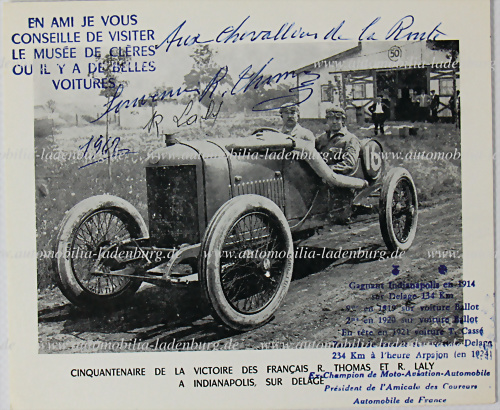 EN AMI JE VOUS
CONSEILLE DE VISITER
LE MUSÉE DE CLÈRES
OU IL Y A DE BELLES
VOITURES
Aux Chevaliers de la Route
Souvenir R. Thomas
R. LALY
1967
50
www.automobilia-ladenburg.de
Gagnant Indianapolis en 1914
sur Delage 134 Km
en 1919 sur voiture Ballot
2e en 1920 sur voiture Ballot
En tête en 1921 voiture T. Cassé
Delage
234 Km à l'heure Arpajon (en 1924)
Ex-Champion de Moto-Aviation-Automobile
Président de l'Amicale des Coureurs
Automobile de France
CINQUANTENAIRE DE LA VICTOIRE DES FRANÇAIS R. THOMAS ET R. LALY
A INDIANAPOLIS, SUR DELAGE